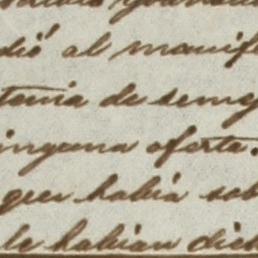 dió al manif
tenia de seme
inguna oferta.
que habia sob
le habian dich